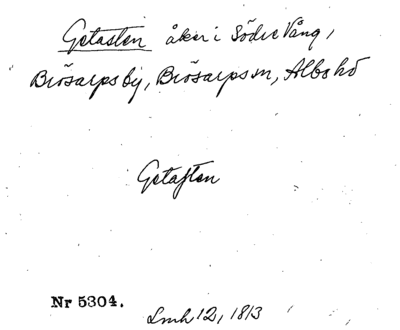 Getasten åker i Södre Vång,
Brösarps by, Brösarps sn, Albo hd
Getaſten
Nr 5304.
Lmh 12, 1813